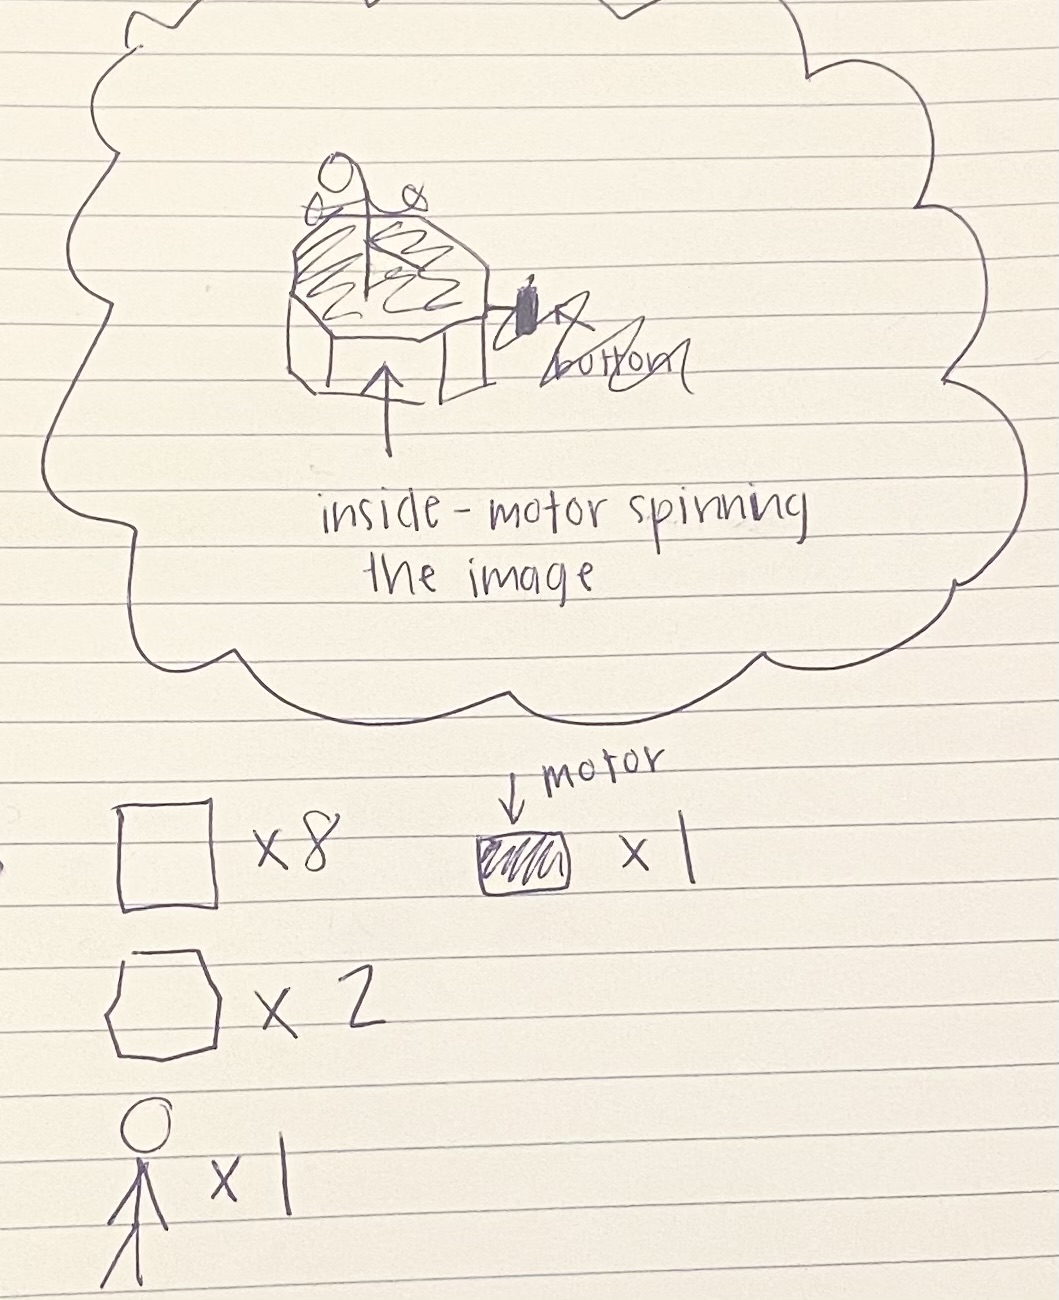 bottom
inside - motor spinning
the image
motor
x 8
x 1
x 2
x 1